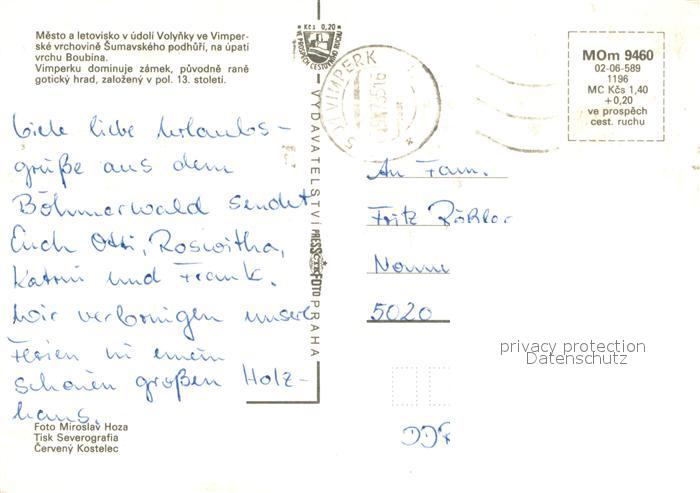 Město a letovisko v údolí Volyňky ve Vimper-
ské vrchovině Šumavského podhůří, na úpatí
vrchu Boubína.
Vimperku dominuje zámek, původně raně
gotický hrad, založený v pol. 13. století.
Kčs 0,20
VE PROSPĚCH CESTOVNÍHO RUCHU
VIMPERK
MOm 9460
02-06-589
1196
MC Kčs 1,40
+0,20
ve prospěch
cest. ruchu
Viele liebe Urlaubs-
grüße aus dem
Böhmerwald sendet
Euch Otti, Roswitha,
Katrin und Frank.
Wir verbringen unsere
Ferien in einem
schönen großen Holz-
haus.
VYDAVATELSTVÍ PRESSFOTO PRAHA
An Fam.
Fritz
5020
DDR
privacy protection
Datenschutz
Foto Miroslav Hoza
Tisk Severografia
Červený Kostelec